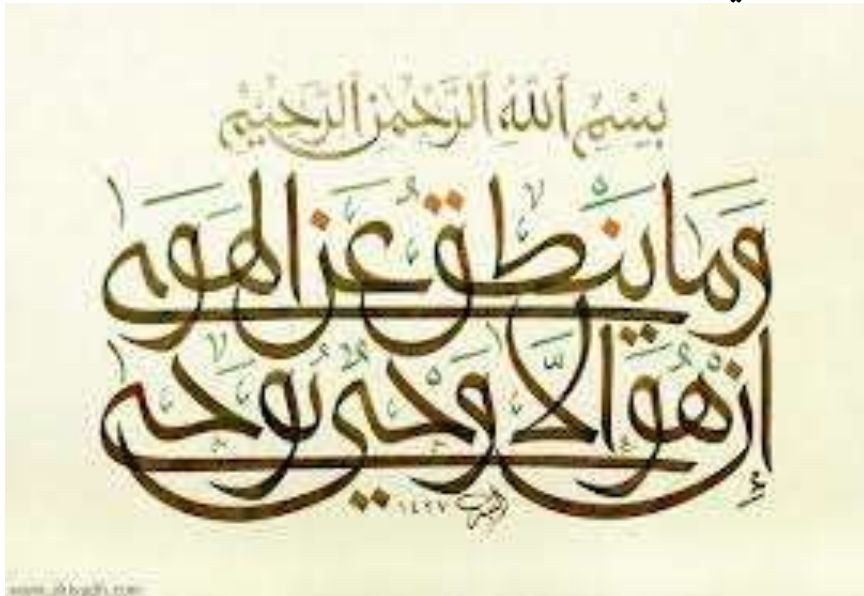 بِسْمِ ٱللَّهِ ٱلرَّحْمٰنِ ٱلرَّحِيمِ
وَمَا يَنْطِقُ عَنِ الْهَوَى
إِنْ هُوَ إِلَّا وَحْيٌ يُوحَى
١٤٢٧